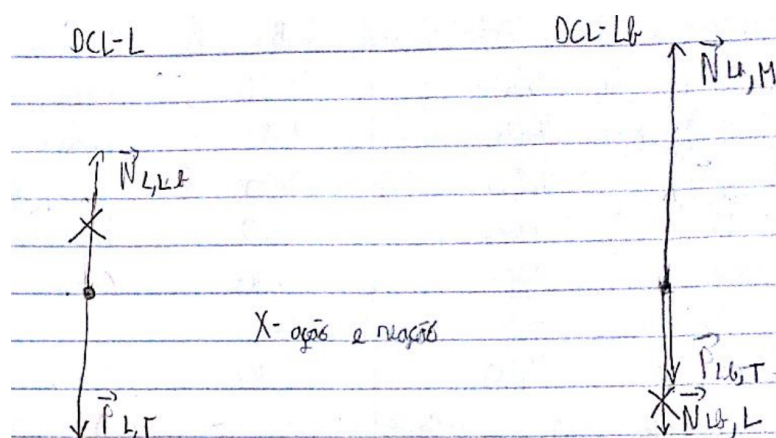 DCL-L
DCL-Lb
N Lb,M
N L,Lb
X- ação e reação
P Lb,T
N Lb,L
P L,T